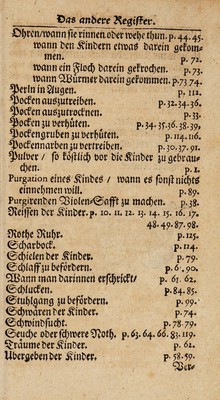 Das andere Register.
Ohren/wann sie rinnen oder wehe thun. p. 44. 45.
wann den Kindern etwas darein gekom-
men. p. 72.
wann ein Floch darein gekrochen. p. 73.
wann Würmer darein gekommen. p. 73 74.
Perln in Augen. p. 111.
Pocken auszutreiben. p. 32. 34. 36.
Pocken auszutrocknen. p. 33.
Pocken zu verhüten. p. 34. 35. 36. 38. 39.
Pockengruben zu verhüten. p. 114. 116.
Pockennarben zu vertreiben. p. 30. 37. 91.
Pulver / so köstlich vor die Kinder zu gebrau-
chen. p. 1.
Purgation eines Kindes / wann es sonst nichts
einnehmen will. p. 89.
Purgirenden Violen-Safft zu machen. p. 38.
Reissen der Kinder. p. 10. 11. 12. 13. 14. 15. 16. 17.
48. 49. 87. 98.
Rothe Ruhr. p. 125.
Scharbock. p. 114.
Schielen der Kinder. p. 79.
Schlaff zu befördern. p. 90.
Wann man darinnen erschrickt/ p. 61. 62.
Schlucken. p. 84. 85.
Stuhlgang zu befördern. p. 99.
Schwären der Kinder. p. 74.
Schwindsucht. p. 78. 79.
Seuche oder schwere Noth. p. 63. 64. 66. 83. 119.
Träume der Kinder. p. 62.
Übergeben der Kinder. p. 58. 59.
Ver-